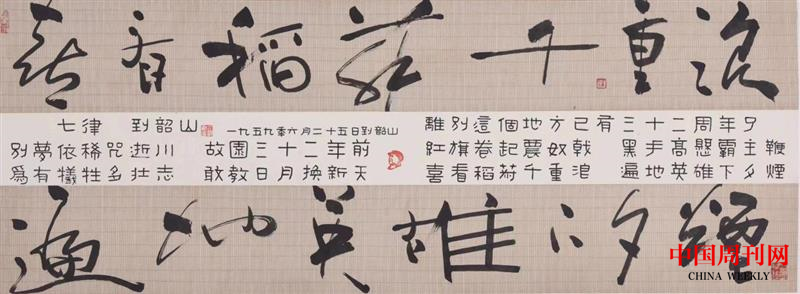 喜看稻菽千重浪
七律 到韶山 一九五九年六月二十五日到韶山 離別這個地方已有三十二周年了
別夢依稀咒逝川 故園三十二年前 紅旗卷起農奴戟 黑手高懸霸主鞭
為有犧牲多壯志 敢教日月換新天 喜看稻菽千重浪 遍地英雄下夕煙
遍地英雄下夕煙
中国周刊网
CHINA WEEKLY